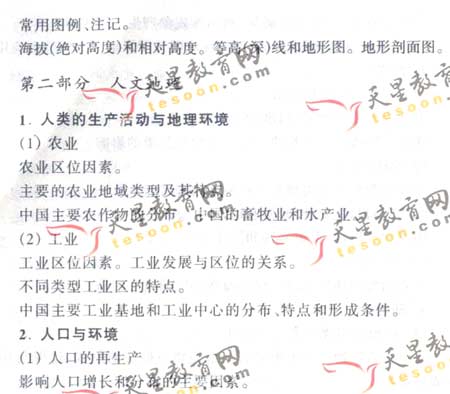 常用图例、注记。
海拔(绝对高度)和相对高度。等高(深)线和地形图。地形剖面图。
第二部分 人文地理
天星教育网
tesoon.com
天星教育网
tesoon.com
1. 人类的生产活动与地理环境
(1) 农业
农业区位因素。
主要的农业地域类型及其特点。
中国主要农作物的分布。中国的畜牧业和水产业。
天星教育网
tesoon.com
天星教育网
tesoon.com
(2) 工业
工业区位因素。工业发展与区位的关系。
不同类型工业区的特点。
中国主要工业基地和工业中心的分布、特点和形成条件。
2. 人口与环境
(1) 人口的再生产
影响人口增长和分布的主要因素。
天星教育网
tesoon.com
天星教育网
tesoon.com